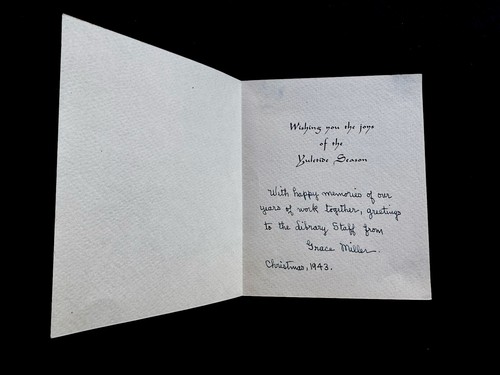 Wishing you the joys
of the
Yuletide Season
With happy memories of our
years of work together, greetings
to the Library Staff from
Grace Miller.
Christmas, 1943.